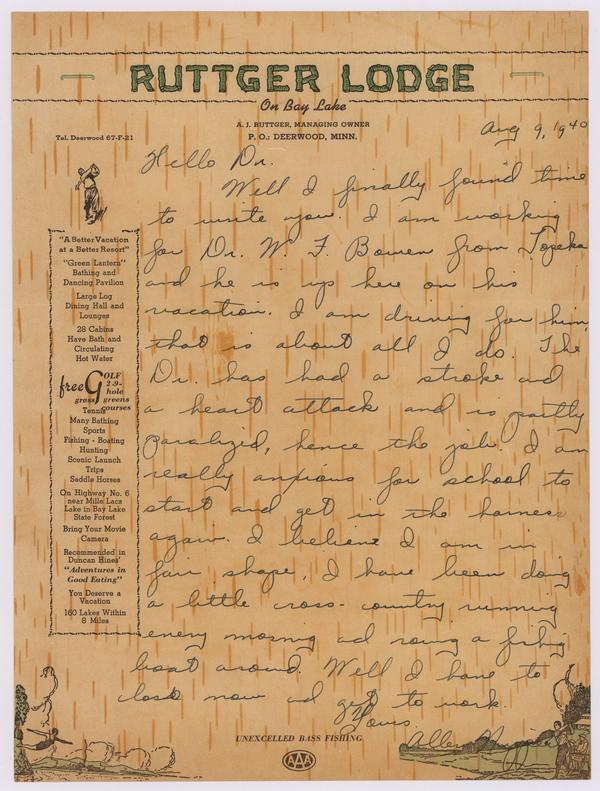 RUTTGER LODGE
On Bay Lake
A. J. RUTTGER, MANAGING OWNER
P. O.: DEERWOOD, MINN.
Tel. Deerwood 67-F-21
Aug 9, 1940
Hello Dr.
Well I finally found time
to write you. I am working
for Dr. W. F. Bowen from Topeka
and he is up here on his
vacation. I am driving for him,
that is about all I do. The
Dr. has had a stroke and
a heart attack and is partly
paralized, hence the job. I am
really anxious for school to
start and get in the harness
again. I believe I am in
fair shape, I have been doing
a little cross-country running
every morning ad rowing a fishing
boat around. Well I have to
close now ad get to work.
Yours.
Allen
"A Better Vacation
at a Better Resort"
"Green Lantern"
Bathing and
Dancing Pavilion
Large Log
Dining Hall and
Lounges
28 Cabins
Have Bath and
Circulating
Hot Water
free GOLF
2 9-
hole
grass greens
courses
Tennis
Many Bathing
Sports
Fishing - Boating
Hunting
Scenic Launch
Trips
Saddle Horses
On Highway No. 6
near Mille Lacs
Lake in Bay Lake
State Forest
Bring Your Movie
Camera
Recommended in
Duncan Hines'
"Adventures in
Good Eating"
You Deserve a
Vacation
160 Lakes Within
8 Miles
UNEXCELLED BASS FISHING
AAA